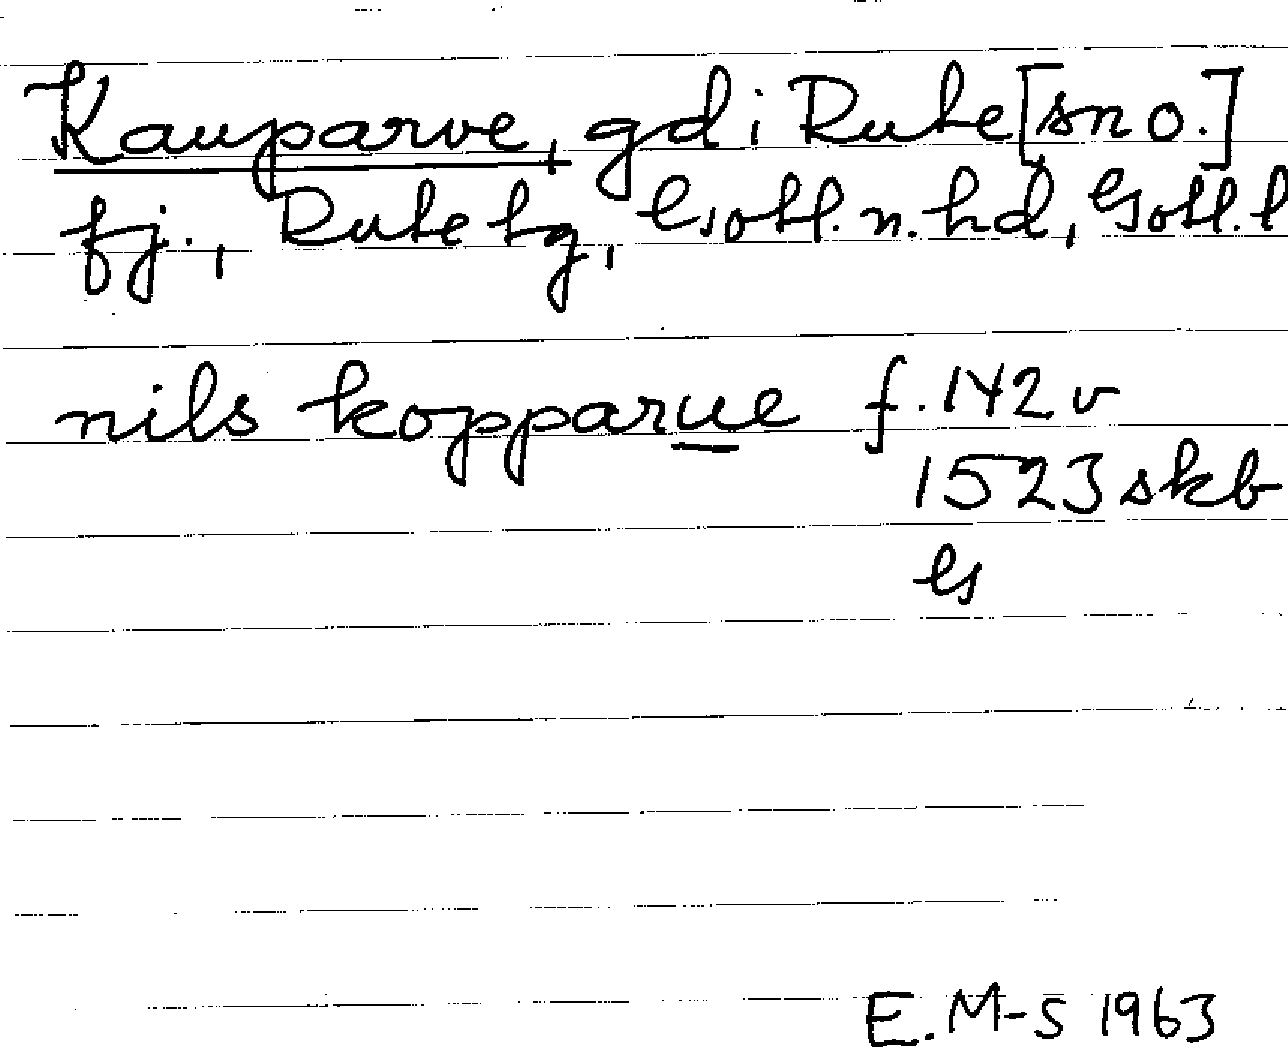 Kauparve, gd i Rute [sn o.]
fj., Rute tg, Gotl. n. hd, Gotl. l
nils kopparue f. 142 v
1523 skb
G
E. M-S 1963